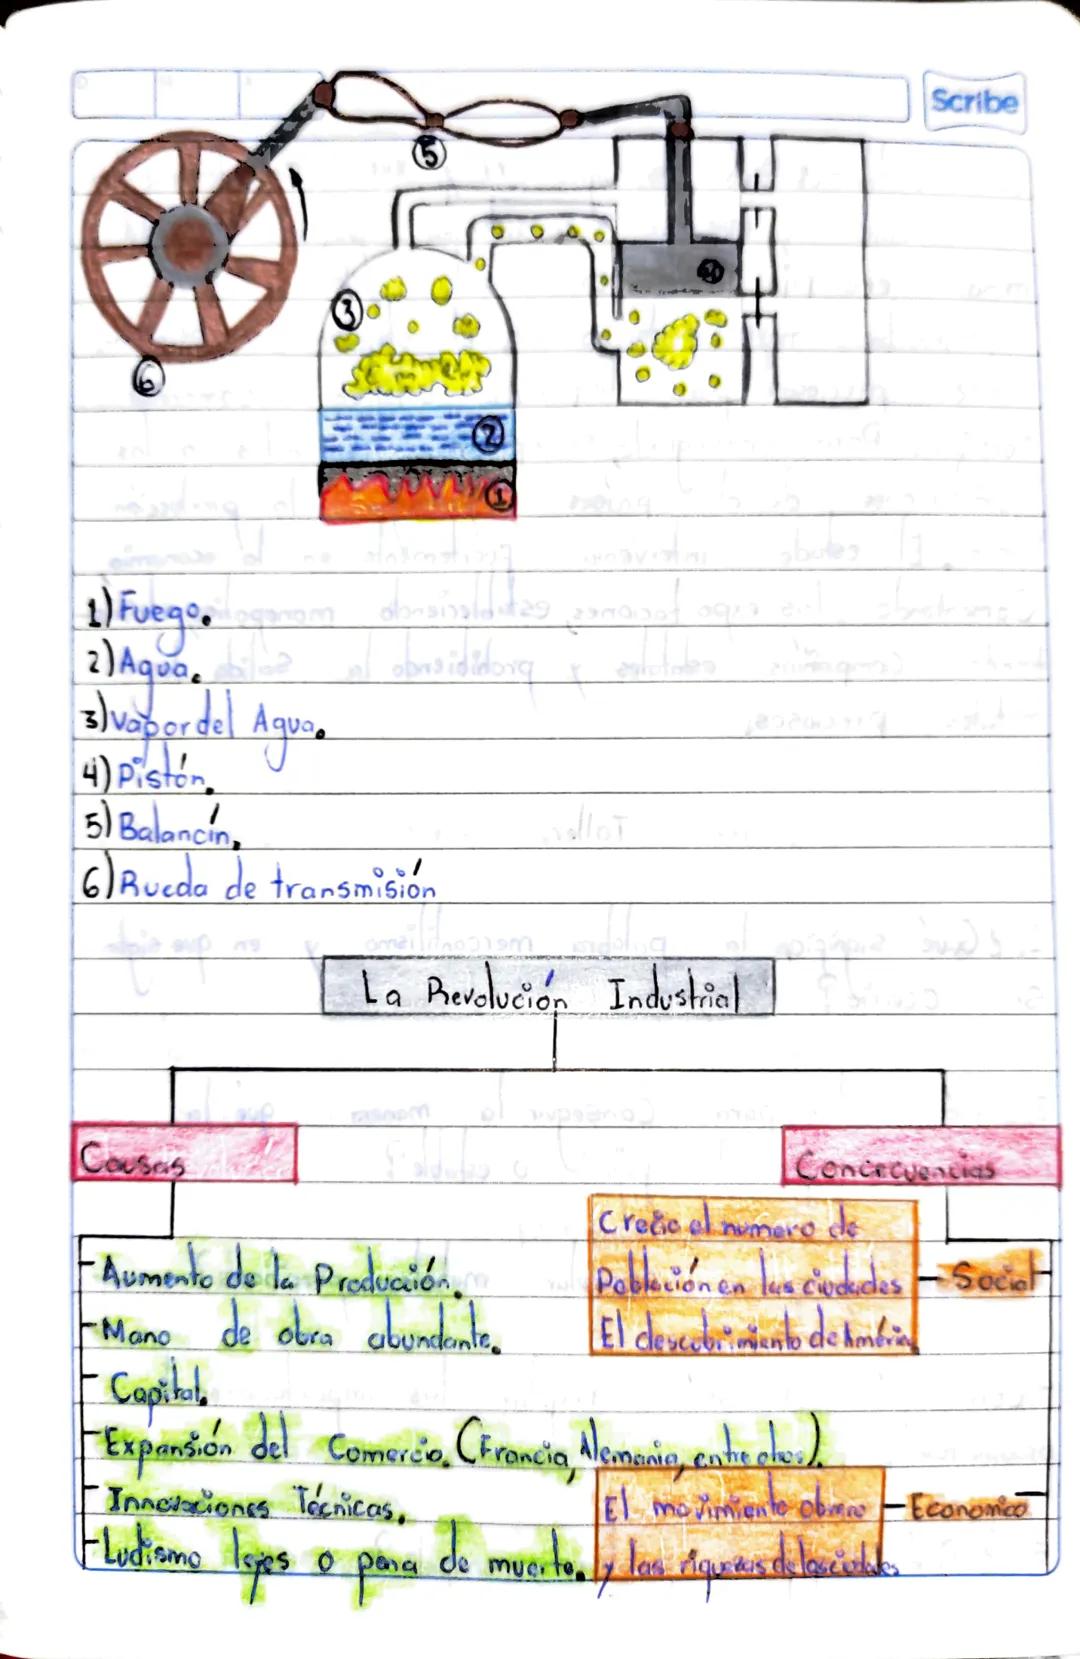 Scribe
5
3
4
6
2
1
1) Fuego.
2) Agua.
3) Vapor del Agua.
4) Pistón.
5) Balancín.
6) Rueda de transmisión
La Revolución Industrial
Causas
Concecuencias
Aumento de la Producción.
Mano de obra abundante.
Capital.
Expansión del Comercio. (Francia, Alemania, entre otros).
Innovaciones Técnicas.
Ludismo leyes o pena de muerte.
Crecio el numero de
Población en las ciudades
El descubrimiento de América
Social
El movimiento obrero
y las riquezas de las ciudades
Economico